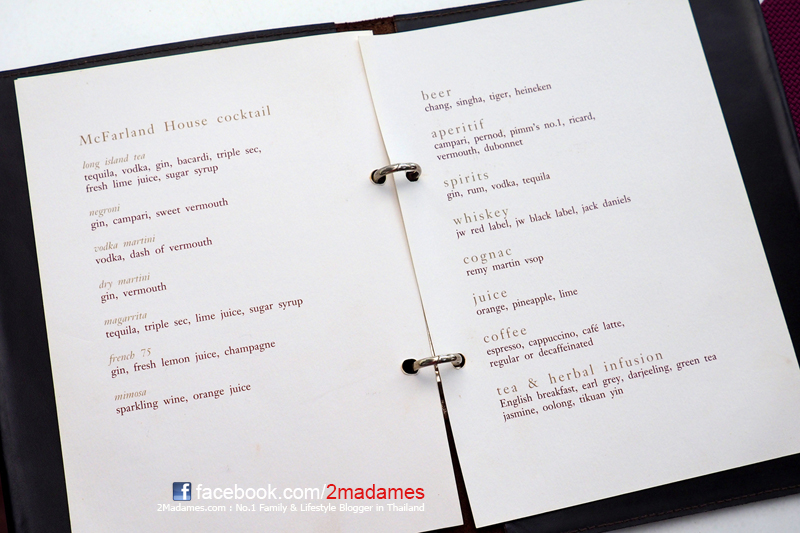 McFarland House cocktail
long island tea
tequila, vodka, gin, bacardi, triple sec,
fresh lime juice, sugar syrup
negroni
gin, campari, sweet vermouth
vodka martini
vodka, dash of vermouth
dry martini
gin, vermouth
magarrita
tequila, triple sec, lime juice, sugar syrup
french 75
gin, fresh lemon juice, champagne
mimosa
sparkling wine, orange juice
beer
chang, singha, tiger, heineken
aperitif
campari, pernod, pimm's no.1, ricard,
vermouth, dubonnet
spirits
gin, rum, vodka, tequila
whiskey
jw red label, jw black label, jack daniels
cognac
remy martin vsop
juice
orange, pineapple, lime
coffee
espresso, cappuccino, café latte,
regular or decaffeinated
tea & herbal infusion
English breakfast, earl grey, darjeeling, green tea
jasmine, oolong, tikuan yin
facebook.com/2madames
2Madames.com : No.1 Family & Lifestyle Blogger in Thailand